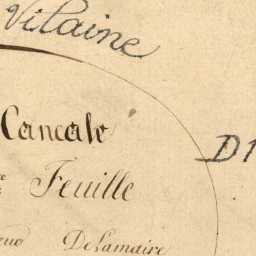 Vilaine
Cancale
D1
Feuille
Delamaire